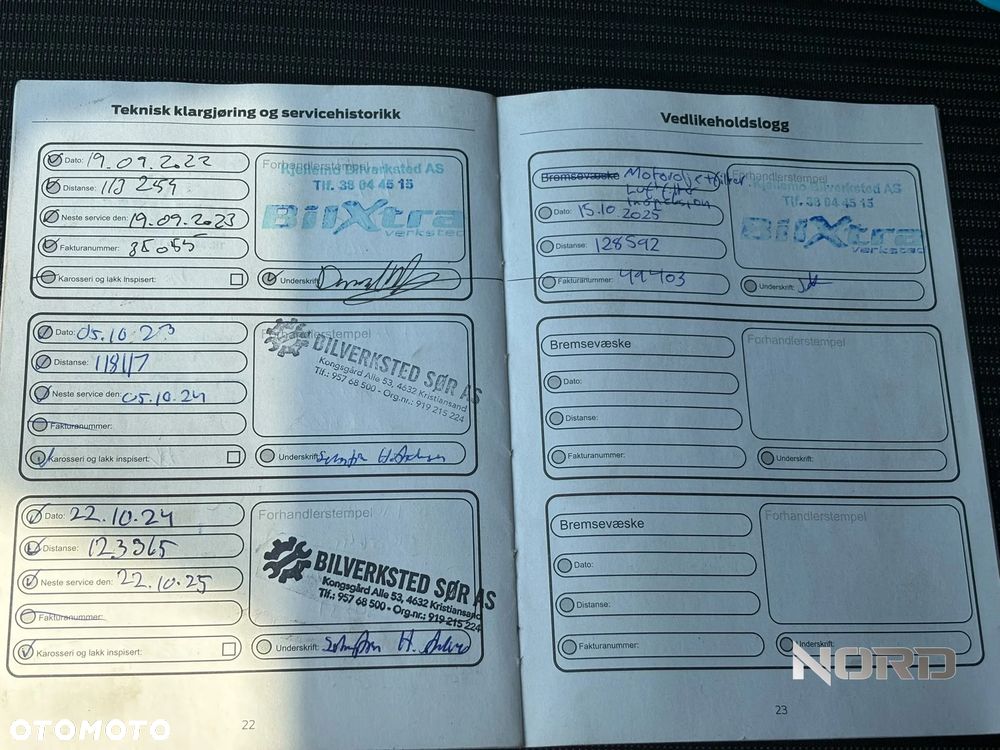 Teknisk klargjøring og servicehistorikk
Dato: 19.09.2022
Distanse: 113 254
Neste service den: 19.09.2023
Fakturanummer: 35055
Karosseri og lakk Inspisert:
Forhandlerstempel
Kjellemo Bilverksted AS
Tlf. 38 04 45 15
BilXtra
verksted
Underskrift:
Dato: 05.10.23
Distanse: 118117
Neste service den: 05.10.24
Fakturanummer:
Karosseri og lakk inspisert:
Forhandlerstempel
BILVERKSTED SØR AS
Kongsgård Alle 53, 4632 Kristiansand
Tlf.: 957 68 500 - Org.nr.: 919 215 224
Underskrift:
Dato: 22.10.24
Distanse: 123365
Neste service den: 22.10.25
Fakturanummer:
Karosseri og lakk inspisert:
Forhandlerstempel
BILVERKSTED SØR AS
Kongsgård Alle 53, 4632 Kristiansand
Tlf.: 957 68 500 - Org.nr.: 919 215 224
Underskrift:
22
Vedlikeholdslogg
Bremsevæske Motorolje+filter
Luftfilter
Inspeksjon
Dato: 15.10.2025
Distanse: 128592
Fakturanummer: 49403
Forhandlerstempel
Kjellemo Bilverksted AS
Tlf. 38 04 45 15
BilXtra
verksted
Underskrift:
Bremsevæske
Dato:
Distanse:
Fakturanummer:
Forhandlerstempel
Underskrift:
Bremsevæske
Dato:
Distanse:
Fakturanummer:
Forhandlerstempel
Underskrift:
23
NORD
OTOMOTO